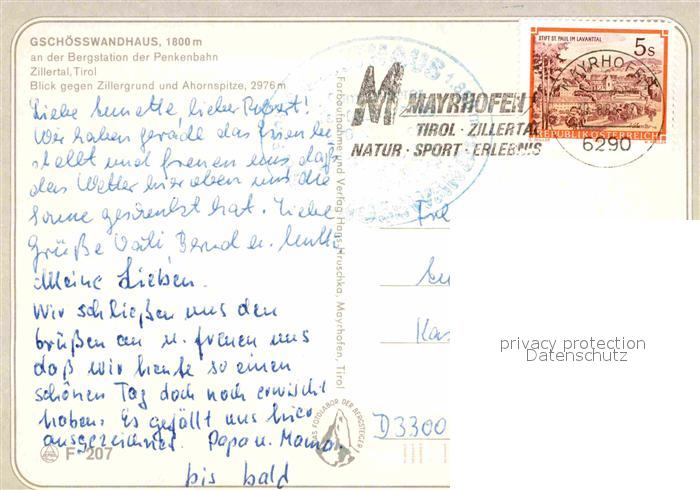 GSCHÖSSWANDHAUS, 1800 m
an der Bergstation der Penkenbahn
Zillertal, Tirol
Blick gegen Zillergrund und Ahornspitze, 2976 m
Liebe lieber Robert!
Wir haben gerade das
stellt und freuen uns daß
das Wetter hier oben uns die
Sonne geschenkt hat. Liebe
Grüße Vati Bernd u. Mutti
Meine Lieben.
Wir schließen uns den
Grüßen an u. freuen uns
daß wir heute so einen
schönen Tag doch noch erwischt
haben. Es gefällt uns hier
ausgezeichnet. Papa u. Mama.
bis bald
F 207
Farbaufnahme und Verlag Hans Hruschka, Mayrhofen, Tirol
DAS FOTOLABOR DER BERGSTEIGER
MAYRHOFEN
TIROL · ZILLERTAL
NATUR · SPORT · ERLEBNIS
STIFT ST. PAUL IM LAVANTTAL
5 S
REPUBLIK ÖSTERREICH
MAYRHOFEN
6290
D 3300
privacy protection
Datenschutz